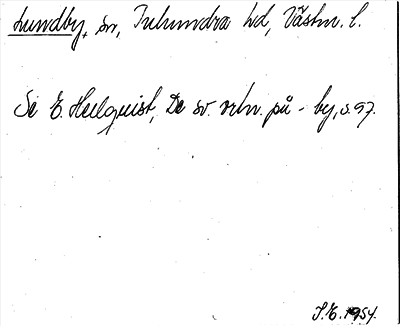 Lundby, sn, Tuhundra hd, Västm. l.
Se E. Hellquist, De sv. ortn. på -by, s. 97.
S.E. 1954.